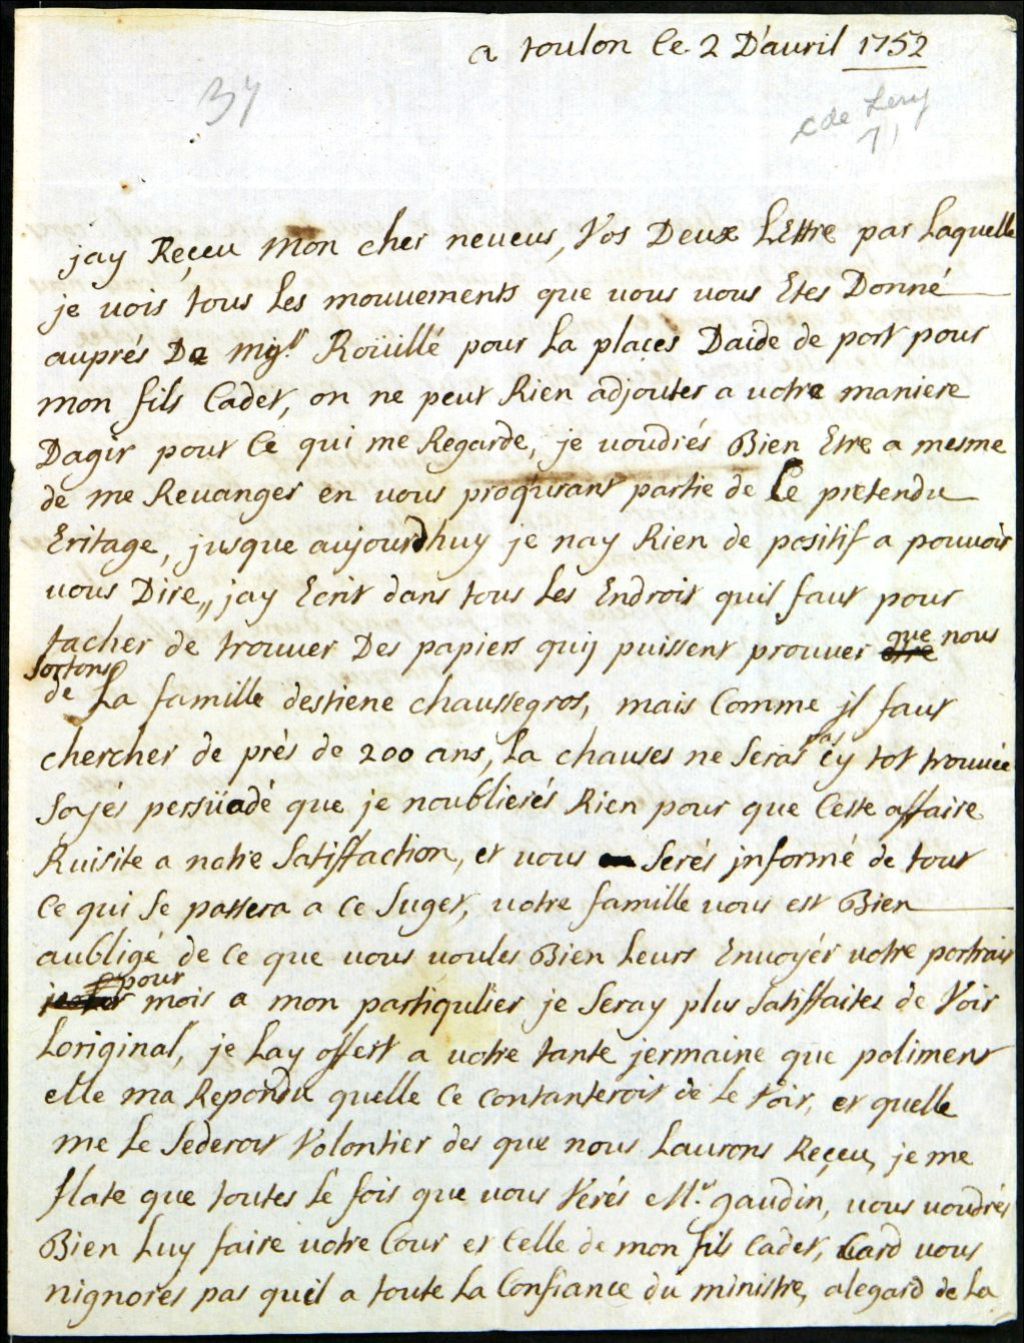 a toulon le 2 D'auril 1752
34
c de Lery
71
jay Reçeu mon cher neueus, Vos Deux LEttre par Laquelle
je vois tous Les mouuements que vous vous Etes Donné
auprés De mgr Roüillé pour La places Daide de port pour
mon fils Cadet, on ne peut Rien adjouter a votre maniere
Dagir pour Ce qui me Regarde, je voudrés Bien Etre a mesme
de me Reuanger en vous proqurant partie de Le pretendu
Eritage, jusque aujourdhuy je nay Rien de positif a pouuoir
vous Dire,, jay Ecrit dans tous Les Endroit quil faut pour
tacher de trouuer Des papiers quij puissent prouuer que nous
sortons
de La famille destiene chaussegros, mais Comme jl faut
chercher de près de 200 ans, La chauses ne Seras pas cy tot trouuée
Soyés persüadé que je noublierés Rien pour que Cette affaire
Ruisite a notre Satiffaction, et vous Serés jnformé de tout
Ce qui Se passera a Ce Suget, votre famille vous est Bien
aubligé de Ce que vous voules Bien Leurs Enuoyér votre portrait
pour
mois a mon partiqulier je Seray plus Satiffaites de Voir
Loriginal, je Lay offert a votre tante jermaine que poliment
elle ma Repondu quelle Ce contanteroit de Le voir, et quelle
me Le Sederoit Volontier des que nous Laurons Reçeu, je me
flate que toutes Le fois que vous Verés Mr. gaudin, vous voudrés
Bien Luy faire votre Cour et Celle de mon fils Cadet, Card vous
nignores pas quil a toute La Confiance du ministre, alegard de La